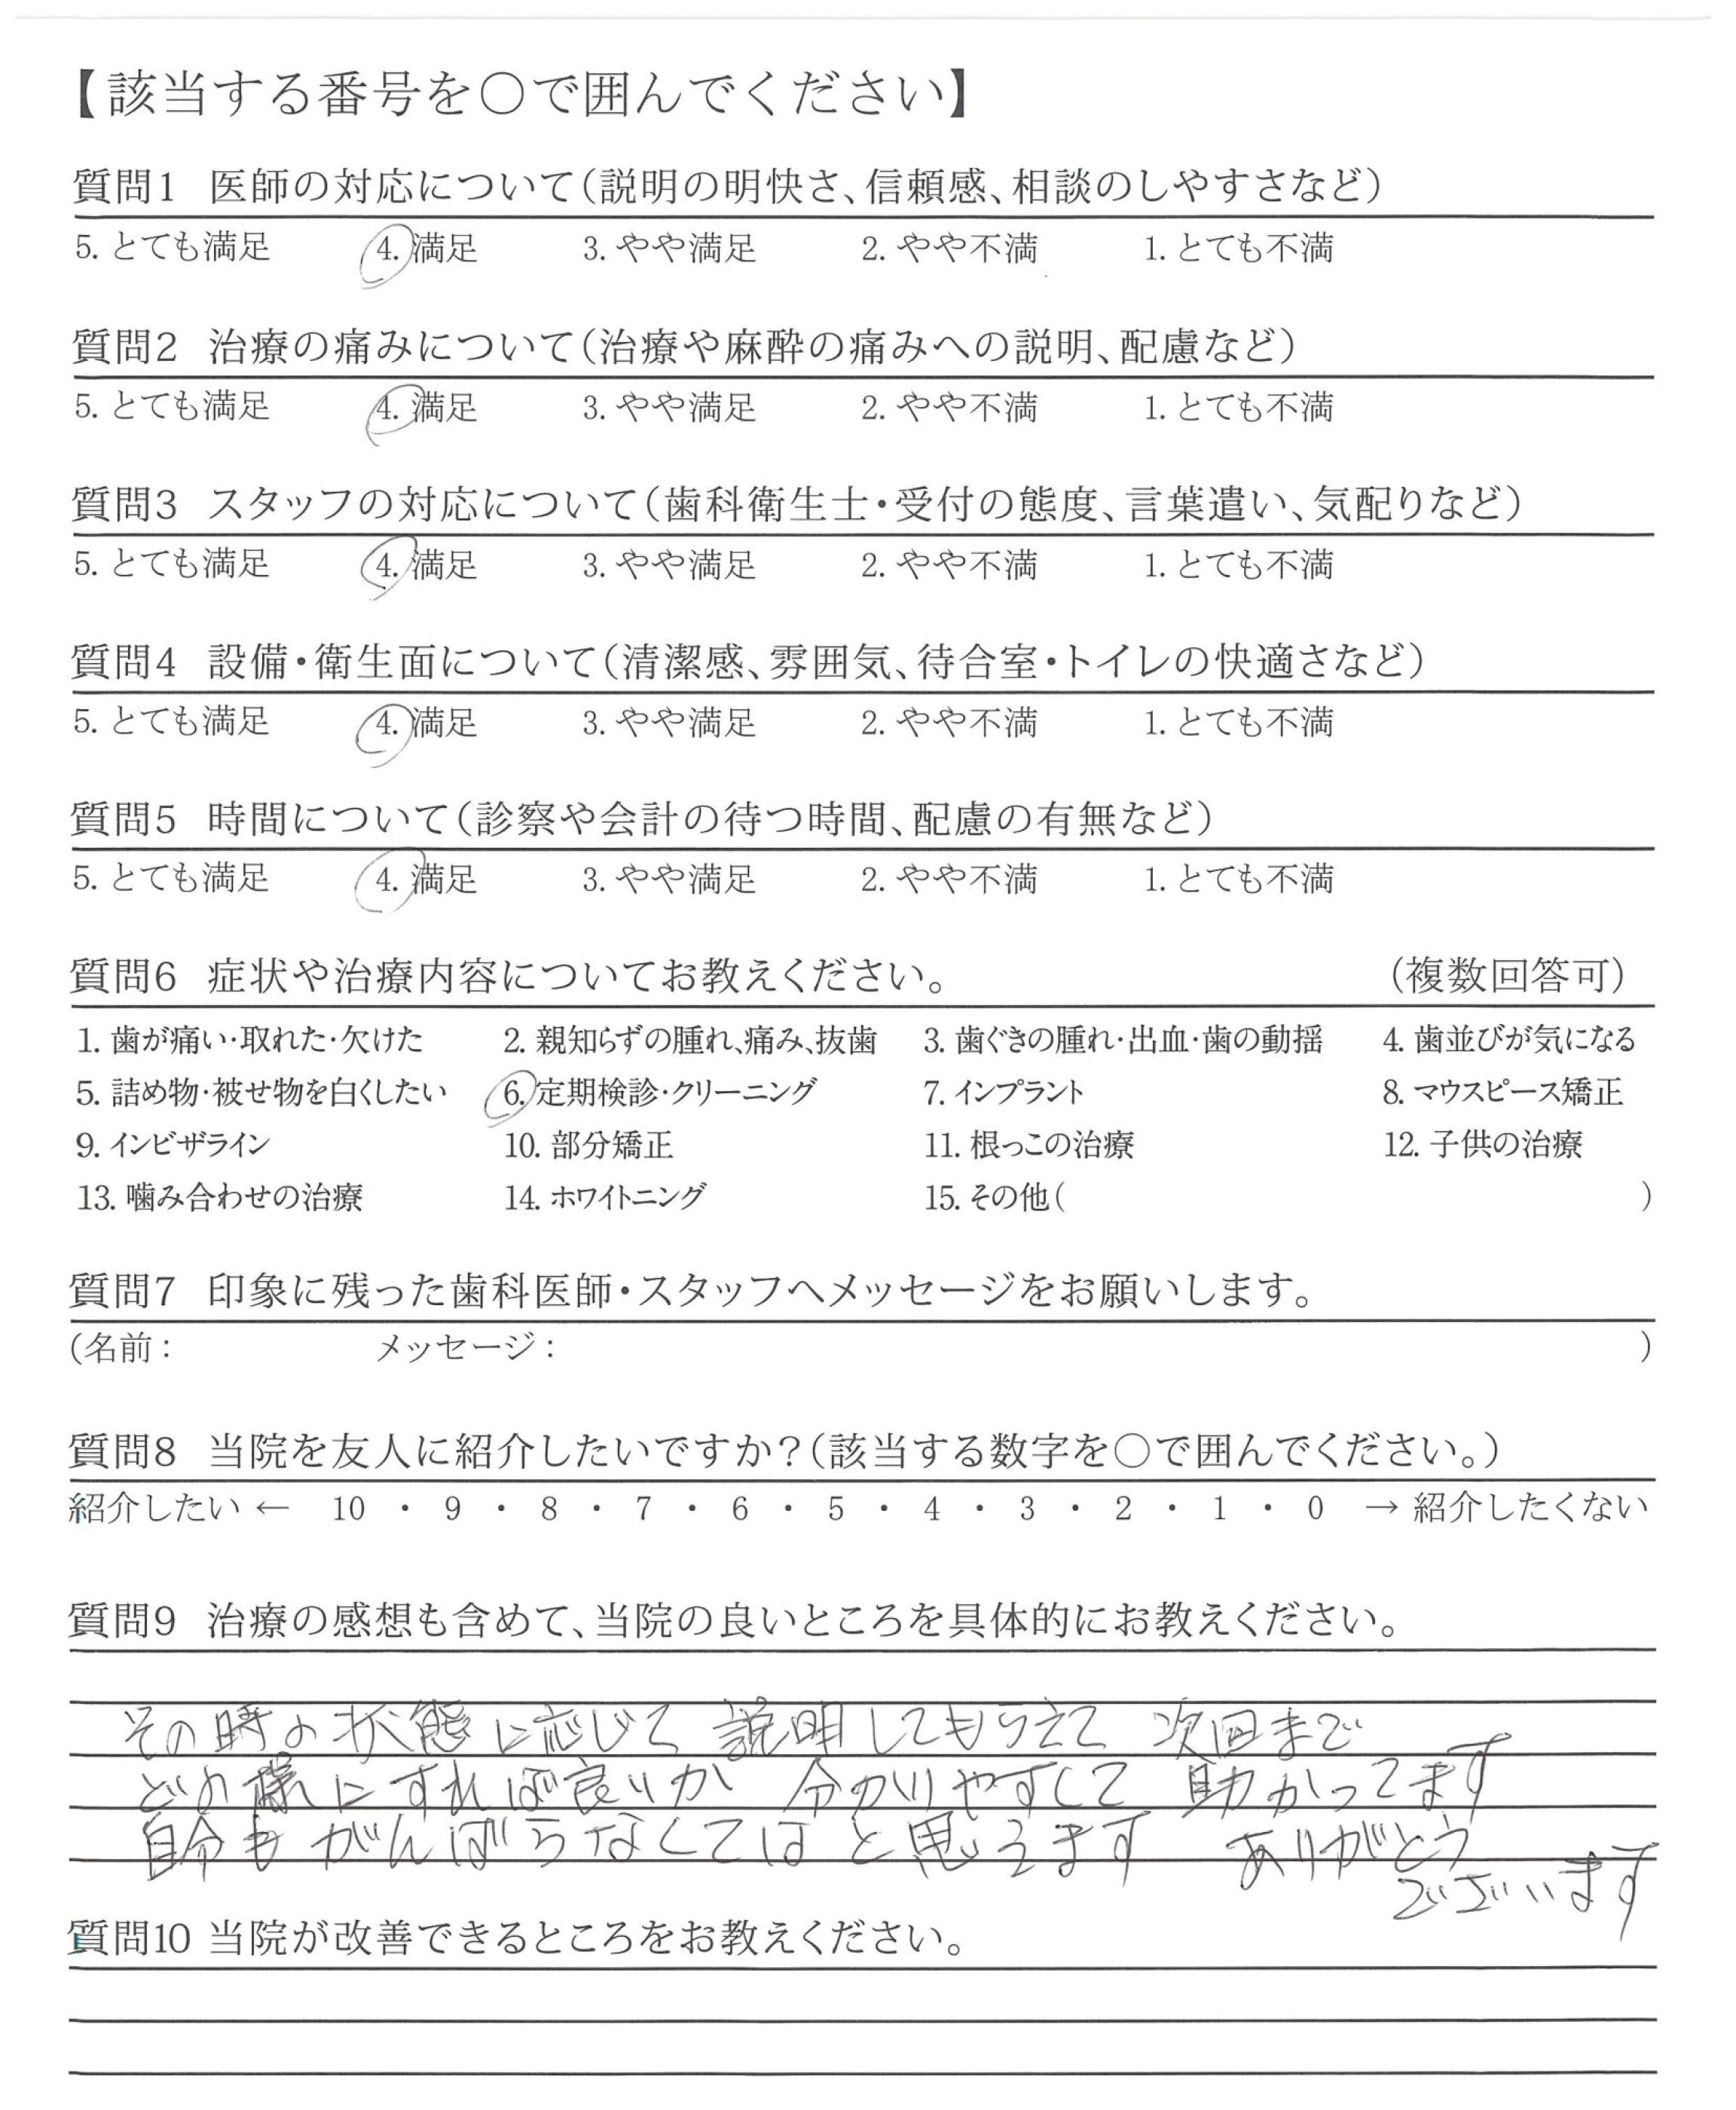 【該当する番号を○で囲んでください】
質問1 医師の対応について(説明の明快さ、信頼感、相談のしやすさなど)
5. とても満足 4. 満足 3. やや満足 2. やや不満 1. とても不満
質問2 治療の痛みについて(治療や麻酔の痛みへの説明、配慮など)
5. とても満足 4. 満足 3. やや満足 2. やや不満 1. とても不満
質問3 スタッフの対応について(歯科衛生士・受付の態度、言葉遣い、気配りなど)
5. とても満足 4. 満足 3. やや満足 2. やや不満 1. とても不満
質問4 設備・衛生面について(清潔感、雰囲気、待合室・トイレの快適さなど)
5. とても満足 4. 満足 3. やや満足 2. やや不満 1. とても不満
質問5 時間について(診察や会計の待つ時間、配慮の有無など)
5. とても満足 4. 満足 3. やや満足 2. やや不満 1. とても不満
質問6 症状や治療内容についてお教えください。 (複数回答可)
1. 歯が痛い・取れた・欠けた 2. 親知らずの腫れ、痛み、抜歯 3. 歯ぐきの腫れ・出血・歯の動揺 4. 歯並びが気になる
5. 詰め物・被せ物を白くしたい 6. 定期検診・クリーニング 7. インプラント 8. マウスピース矯正
9. インビザライン 10. 部分矯正 11. 根っこの治療 12. 子供の治療
13. 噛み合わせの治療 14. ホワイトニング 15. その他( )
質問7 印象に残った歯科医師・スタッフへメッセージをお願いします。
(名前: メッセージ: )
質問8 当院を友人に紹介したいですか?(該当する数字を○で囲んでください。)
紹介したい ← 10 ・ 9 ・ 8 ・ 7 ・ 6 ・ 5 ・ 4 ・ 3 ・ 2 ・ 1 ・ 0 → 紹介したくない
質問9 治療の感想も含めて、当院の良いところを具体的にお教えください。
その時の状態に応じて 説明してもらえて 次回まで
どの様にすれば良いか 分かりやすくて 助かってます
自分も がんばらなくては と思えます ありがとう
ございます
質問10 当院が改善できるところをお教えください。